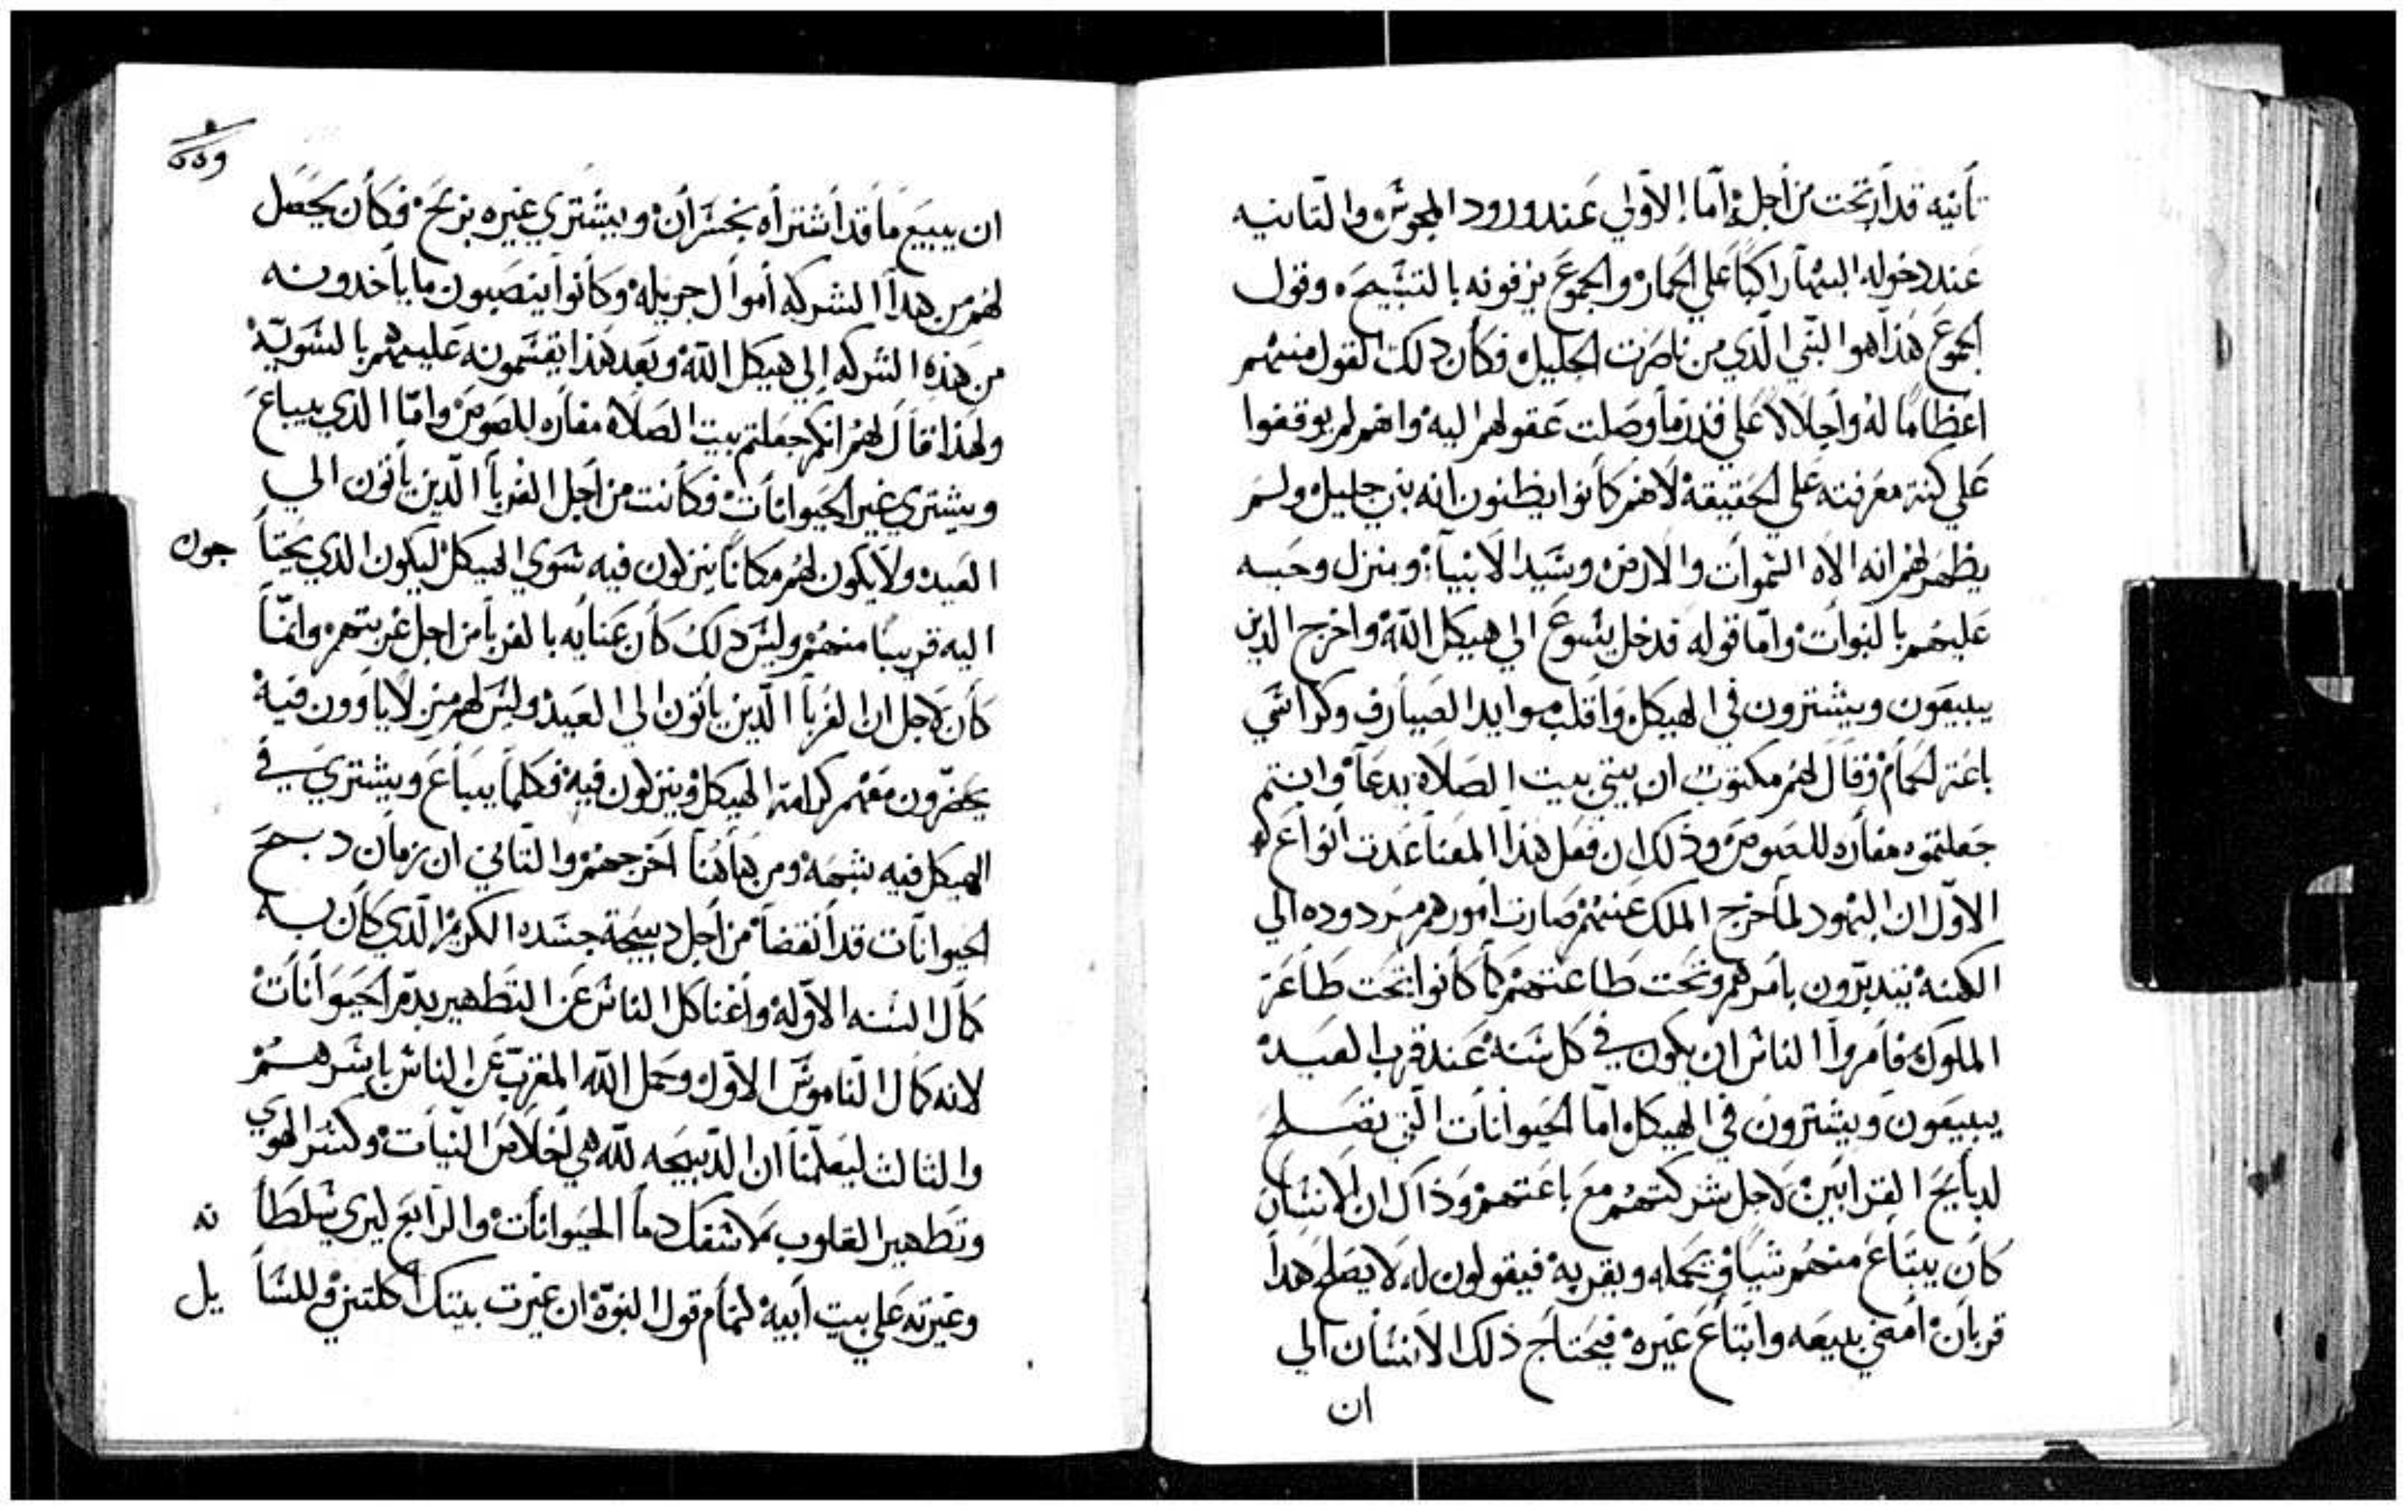 تأنيه قد ارتجت من أجله أما الأولي عند ورود المجوس والتانيه
عند دخوله اليها راكبًا علي الحمار والجموع يزفونه بالتشبيحه وقول
الجموع هذا هوا النبي الّدي من ناصرت الجليل فكان دلك القول منهم
اعظامًا له واجلالاً علي قدر ما وصلت عقولهم اليه وانهم لم يوقفوا
علي كنة معرفته علي الحقيقة لانهم كانوا يظنون انه نبي جليل ولم
يظهر لهم انه الاه السموات والارض وسيد الانبيا ومنزل وحيه
عليهم بالنبوات وامّا قوله فدخل يسوع الي هيكل اللّه واخرج الدين
يبيعون ويشترون في الهيكل واقلب موايد الصيارف وكراسي
باعة الحمام وقال لهم مكتوب ان بيتي بيت الصلاه يدعا وانتم
جعلتموه مغاره للصوص وذلك ان فعل هذا المعنا عدت انواع
الاوّل ان اليهود لما خرج الملك عنهم صارت امورهم مردوده الي
الكهنه يتدبّرون بامرهم وتحت طاعتهم كما كانوا تحت طاعة
الملوك فامروا الناس ان يكون في كل سنة عند قرب العيد
يبيعون ويشترون في الهيكل امّا الحيوانات الّتي تصلح
لدبايح القرابين لاجل شركتهم مع باعتهم وذاك ان الانسان
كان يبتاع منهم شيا ويحمله ويقربه فيقولون له لا يصلح هدا
قربان امضي بديعه وابتاع غيره فيحتاج ذلك الانسان الي
ان
ان يبيع ما قد اشتراه بخسران ويشتري غيره بربح فكان يحصل
لهم من هدا الشركه أموال جزيله وكانوا ينصبون ما ياخدونه
من هذه الشركه الي هيكل اللّه وبعد هذا يقسمونه عليهم بالسويّه
ولهذا قال لهم انكم جعلتم بيت الصلاه مغاره للصوص وامّا الذي يباع
ويشتري غير الحيوانات فكانت من أجل الغربا الّدين ياتون الي
العيد ولا يكون لهم مكانًا ينزلون فيه سوي الهيكل ليكون الذي يحتا جون
اليه قريبًا منهم وليس دلك كان عنايه بالغربا من اجل غربتهم وانّما
كان لاجل ان الغربا الّدين ياتون الي العيد وليس لهم منزلا ياوون فيه
يحضرون معهم كرامة الهيكل وينزلون فيه فكلما يباع ويشتري في
الهيكل فيه بشبهه ومن هاهنا اخرجهم والتاني ان زمان دبح
الحيوانات قد أنقضا من أجل دبيحة جسده الكريم الّدي كان به
كمال السنه الاوّله واغنا كل الناس عن التطهير بدمّ الحيوانات
لانه كمال النّاموس الاوّل وحمل اللّه المقرّب عن الناس باسرهم
والثالث ليعلّمنا ان الدّبيحه للّه هي اخلاص النيّات وكسر الهوي
وتطهير القلوب لا سفك دما الحيوانات والرّابع ليري سلطا نه
وغيرته علي بيت أبيه لتمام قول النبوّه ان غيرت بيتك أكلتني وللسا يل